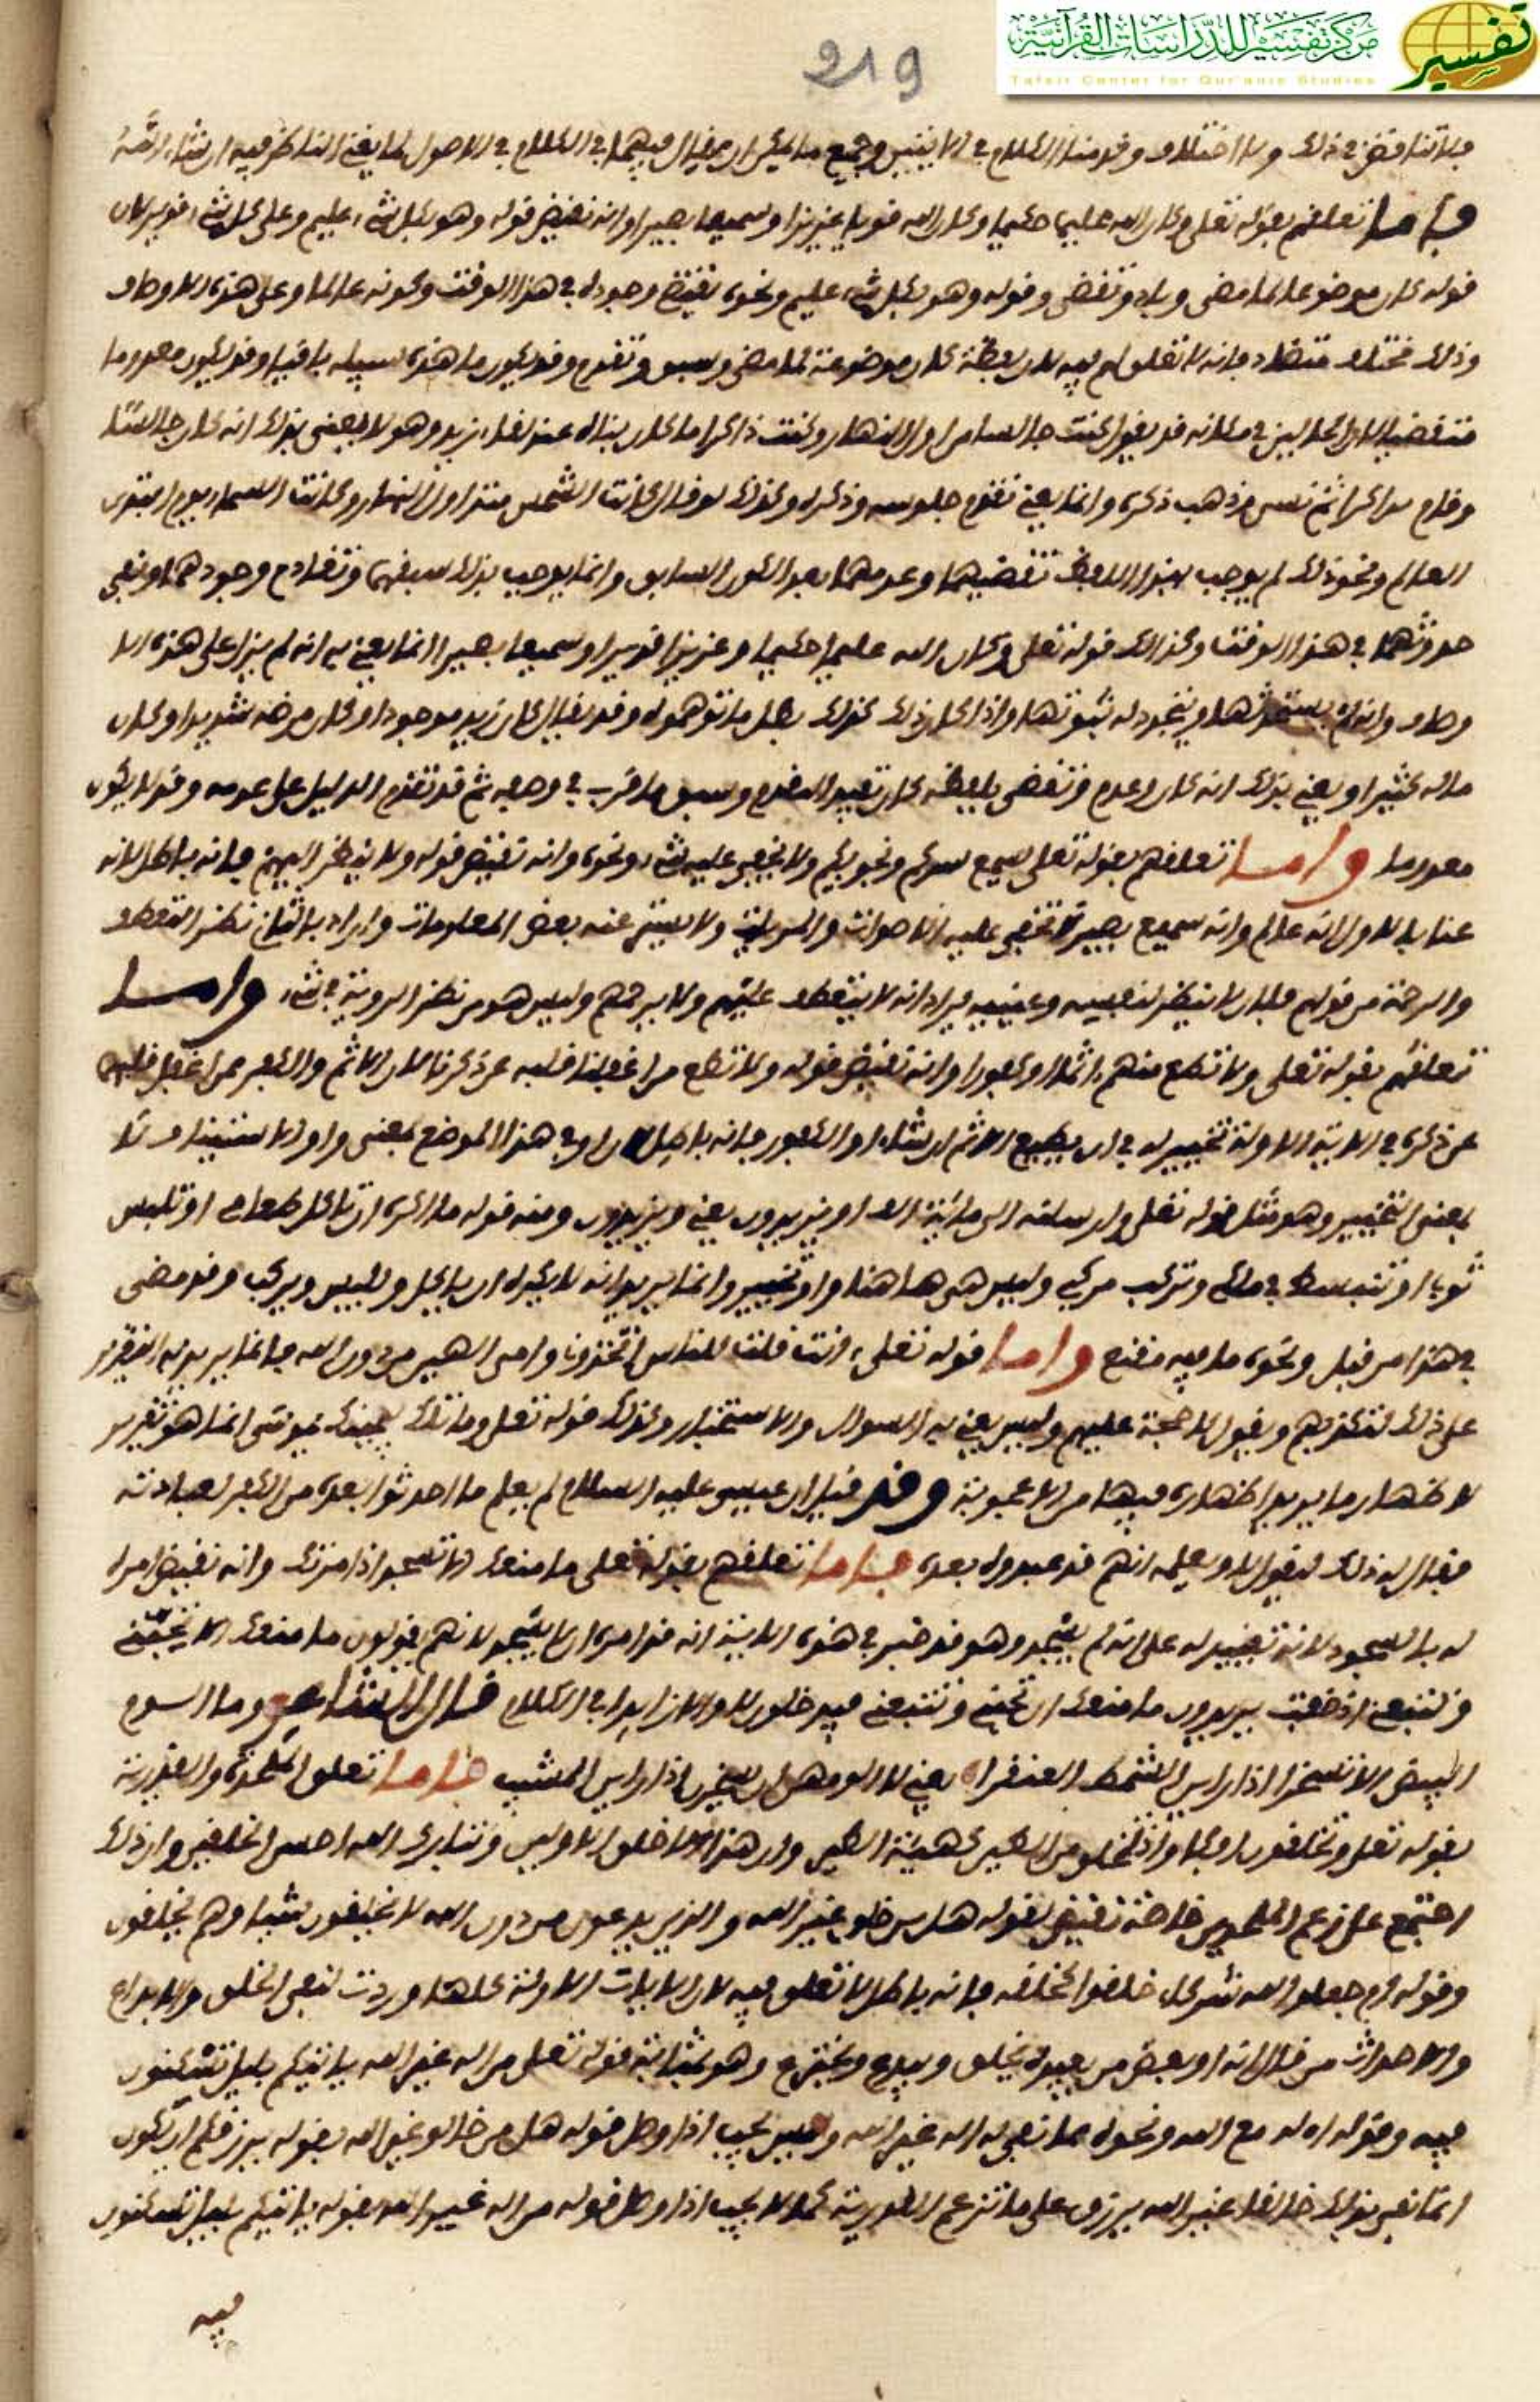 مركز تفسير للدراسات القرآنية
تفسير
Tafsir Center for Qur'anic Studies
219
فلا تناقض في ذلك ولا اختلاف وقد منا الكلام في الايتين وجميع ما يمكن ان يقال فيهما في الكلام في الاصول بما يغني الناظر فيه ان شاء الله
فاما تعلقهم بقوله تعلى وكان الله عليما حكيما وكان الله قويا عزيزا وسميعا بصيرا وانه نقيض قوله وهو بكل شيء عليم وعلى كل شيء قدير لان
قوله كان موضوعا لما مضى وباد وتقضى وقوله وهو بكل شيء عليم ونحوه يقتضي وجوده في هذا الوقت وكونه عالما وعلى هذه الاوصاف
وذلك مختلف متضاد فانه لا تعلق لهم فيه لان لفظة كان موضوعة لما مضى وسبق وتقدم وقد يكون ما هذه سبيله باقيا وقد يكون معدوما
متقضيا الا ان القائل قد يقول كنت جالسا من اول النهار وكنت ذاكرا ما كان بنا له عند لقاء زيد وهو لا يعني بذلك انه كان جالسا
وقام ذاكرا ثم نسي وذهب ذكره وانما يعني تقدم جلوسه وذكره وكذلك لو قال كانت الشمس منذ اول النهار وكانت السماء يوم ابتدى
العالم ونحو ذلك لم يوجب بهذا اللفظ تقضيهما وعدمهما بعد الكون السابق وانما يوجب بذلك سبقهما وتقادم وجودهما ونفي
حدوثهما في هذا الوقت وكذلك قوله تعلى وكان الله عليما حكيما وعزيزا قديرا وسميعا بصيرا انما يعني به انه لم يزل على هذه الا
وصاف وانه لم يستحدثها ويتجدد له ثبوتها واذا كان ذلك كذلك بطل ما توهموه وقد يقال كان زيد موجودا وكان مرضه شديدا وكان
ماله كثيرا ويعني بذلك انه كان وعدم وتقضى بلفظة كان تفيد التقدم وسبق ما قرب في وصفه ثم قد تقدم الدليل على عدمه وقد لا يكون
معدوما واما تعلقهم بقوله تعلى يسمع سركم ونجويكم ولا يخفى عليه شيء ونحوه وانه نقيض قوله ولا ينظر اليهم فانه باطل لانه
عنا بالاول انه عالم وانه سميع بصير لا تخفى عليه الاصوات والمرئيات ولا يستتر عنه بعض المعلومات واراد بالثاني نظر التعطف
والرحمة من قولهم فلان لا ينظر لنفسه وعنيه يراد انه لا يتعطف عليهم ولا يرحمهم وليس هو من نظر الروية في شيء واما
تعلقهم بقوله تعلى ولا تطع منهم اثما او كفورا وانه نقيض قوله ولا تطع من اغفلنا قلبه عن ذكرنا لان الاثم والكفر ممن اغفل قلبه
عن ذكره في الاية الاولة تخيير له في ان يطيع الاثم ان شاء او الكفور فانه باطل لان او في هذا الموضع بمعنى واو الاستيناف لا
بمعنى التخيير وهو مثل قوله تعلى وارسلنه الى ماية الف او يزيدون يعني ويزيدون ومنه قوله ما اكره ان تاكل طعامي او تلبس
ثوبا او تنبسط في مالي وتركب مركبي وليس هي هاهنا واو تخيير وانما يريد انه لا يكره ان ياكل ويلبس ويركب وقد مضى
في هذا من قبل ونحوه ما فيه مقنع واما قوله تعلى ءانت قلت للناس اتخذوني وامي الهين من دون الله فانما يريد به التقرير
على ذلك لتكذيبهم ويقول لا حجة عليهم وليس يعني به السوال والاستخبار وكذلك قوله تعلى وما تلك بيمينك يموسى انما هو تقرير
لاظهار ما يريد اظهاره فيها من الاعجوبة وقد قيل ان عيسى عليه السلام لم يعلم ما احدثوا بعده من الكفر لعبادته
فقال له ذلك ليقول لا ويعلمه انهم قد عبدوه بعده فاما تعلقهم بقوله تعلى ما منعك الا تسجد اذ امرتك وانه نقيض امره
له بالسجود لانه تعيير له على انه لم يسجد وهو قد خبر في هذه الاية انه قد امره ان لا يسجد لانهم يقولون ما منعك الا تجيئني
وتتبعني اذ ذهبت يريدون ما منعك ان تجيئني وتتبعني فيدخلون لا والا زايدا في الكلام قال الشاعر وما السوم
البيض الا تسخرا اذا راين الشمط القفندرا يعني لا الومهن ان يسخرن اذا راين المشيب فاما تعلق الملحدة والقدرية
بقوله تعلى وتخلقون افكا واذ تخلق من الطين كهيئة الطير وان هذا الا خلق الاولين وتبارك الله احسن الخلقين وان ذلك
اجتمع على زعم الملحدين خاصة نقيض لقوله هل من خلق غير الله والذين يدعون من دون الله لا يخلقون شيئا وهم يخلقون
وقوله ام جعلوا لله شركاء خلقوا كخلقه فانه باطل لا تعلق فيه لان الايات الاولة كلها وردت لنفي الخلق والابداع
والاحداث من قال انه او بعض من يعبده يخلق ويبدع ويخترع وهو بمثابة قوله تعلى من اله غير الله ياتيكم بليل تسكنون
فيه وقوله اءله مع الله ونحوه مما نفى به اله غير الله وليس يجب اذا وصل قوله هل من خالق غير الله بقوله يرزقكم ان يكون
انما نفى بذلك خالقا غير الله يرزق على ما تزعم القدرية كما لا يجب اذا وصل قوله من اله غير الله بقوله ياتيكم بليل تسكنون
فيه